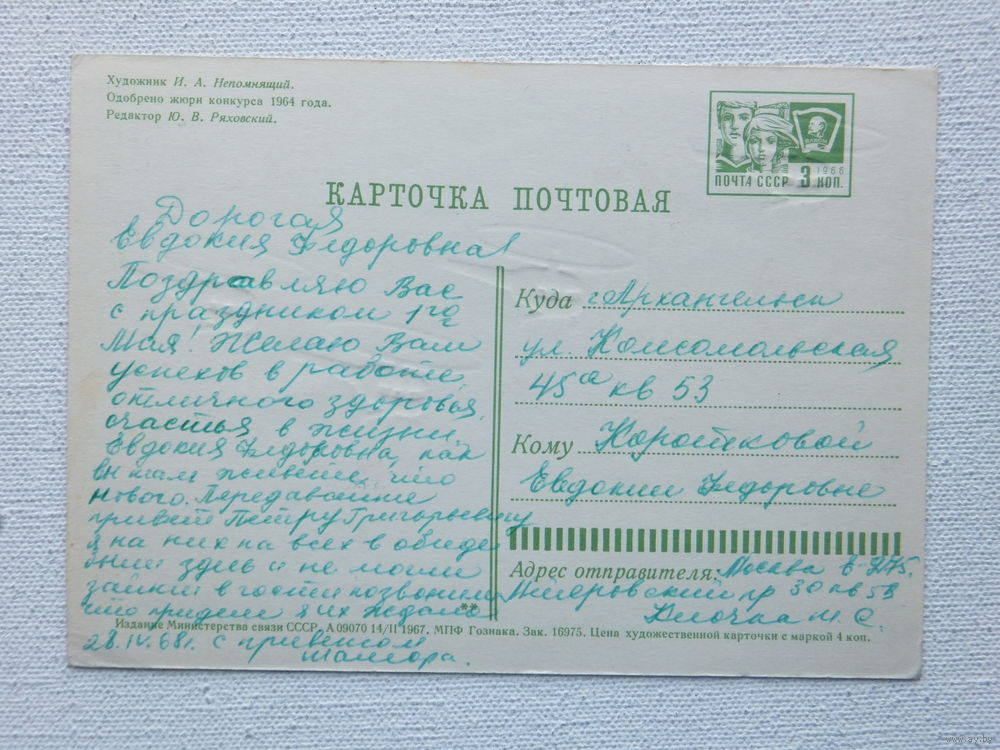 Художник И. А. Непомнящий.
Одобрено жюри конкурса 1964 года.
Редактор Ю. В. Ряховский.
ВЛКСМ
1966
ПОЧТА СССР 3 КОП.
КАРТОЧКА ПОЧТОВАЯ
Дорогая
Евдокия Федоровна!
Поздравляю Вас
с праздником 1го
Мая! Желаю Вам
успехов в работе,
отличного здоровья,
счастья в жизни.
Евдокия Федоровна, как
вы там живете, что
нового. Передавайте
привет Петру Григорьевичу
я на них на всех в обиде
были здесь и не могли
зайти в гости позвонили
что придем я их ждала
28.IV.68г. с приветом
Тамара.
Куда г. Архангельск
ул. Комсомольская
45а кв 53
Кому Коротковой
Евдокии Федоровне
Адрес отправителя: Москва
пр 30 кв 58
**
Издание Министерства связи СССР. А 09070 14/II 1967. МПФ Гознака. Зак. 16975. Цена художественной карточки с маркой 4 коп.
www.ay.by